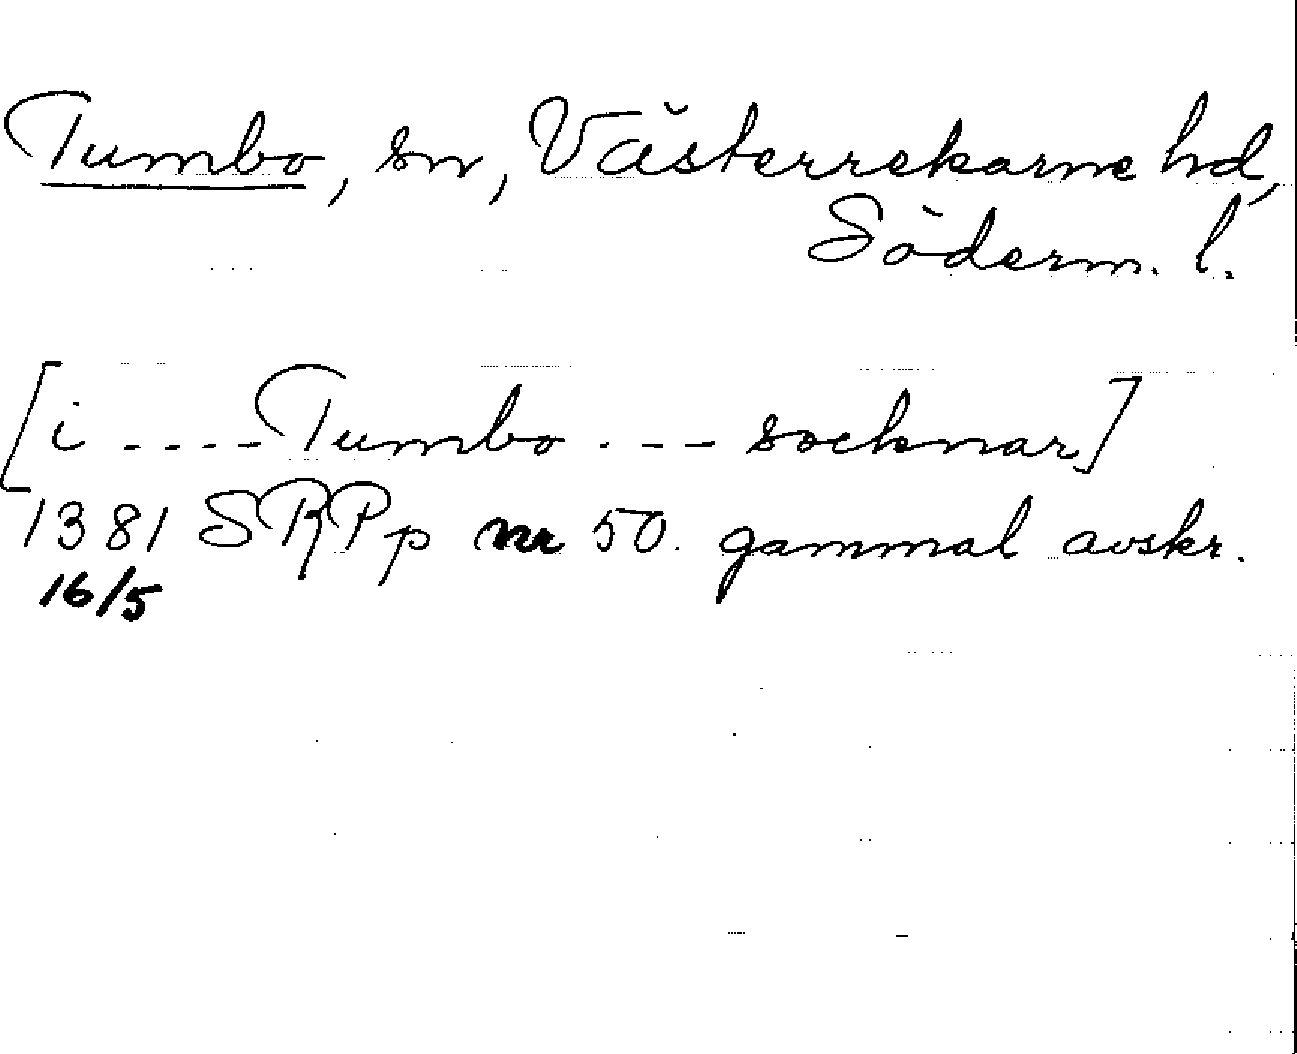 Tumbo, sn, Västerrekarne hd,
Söderm. l.
[i ---- Tumbo --- socknar]
1381 SRPp nr 50. gammal avskr.
16/5